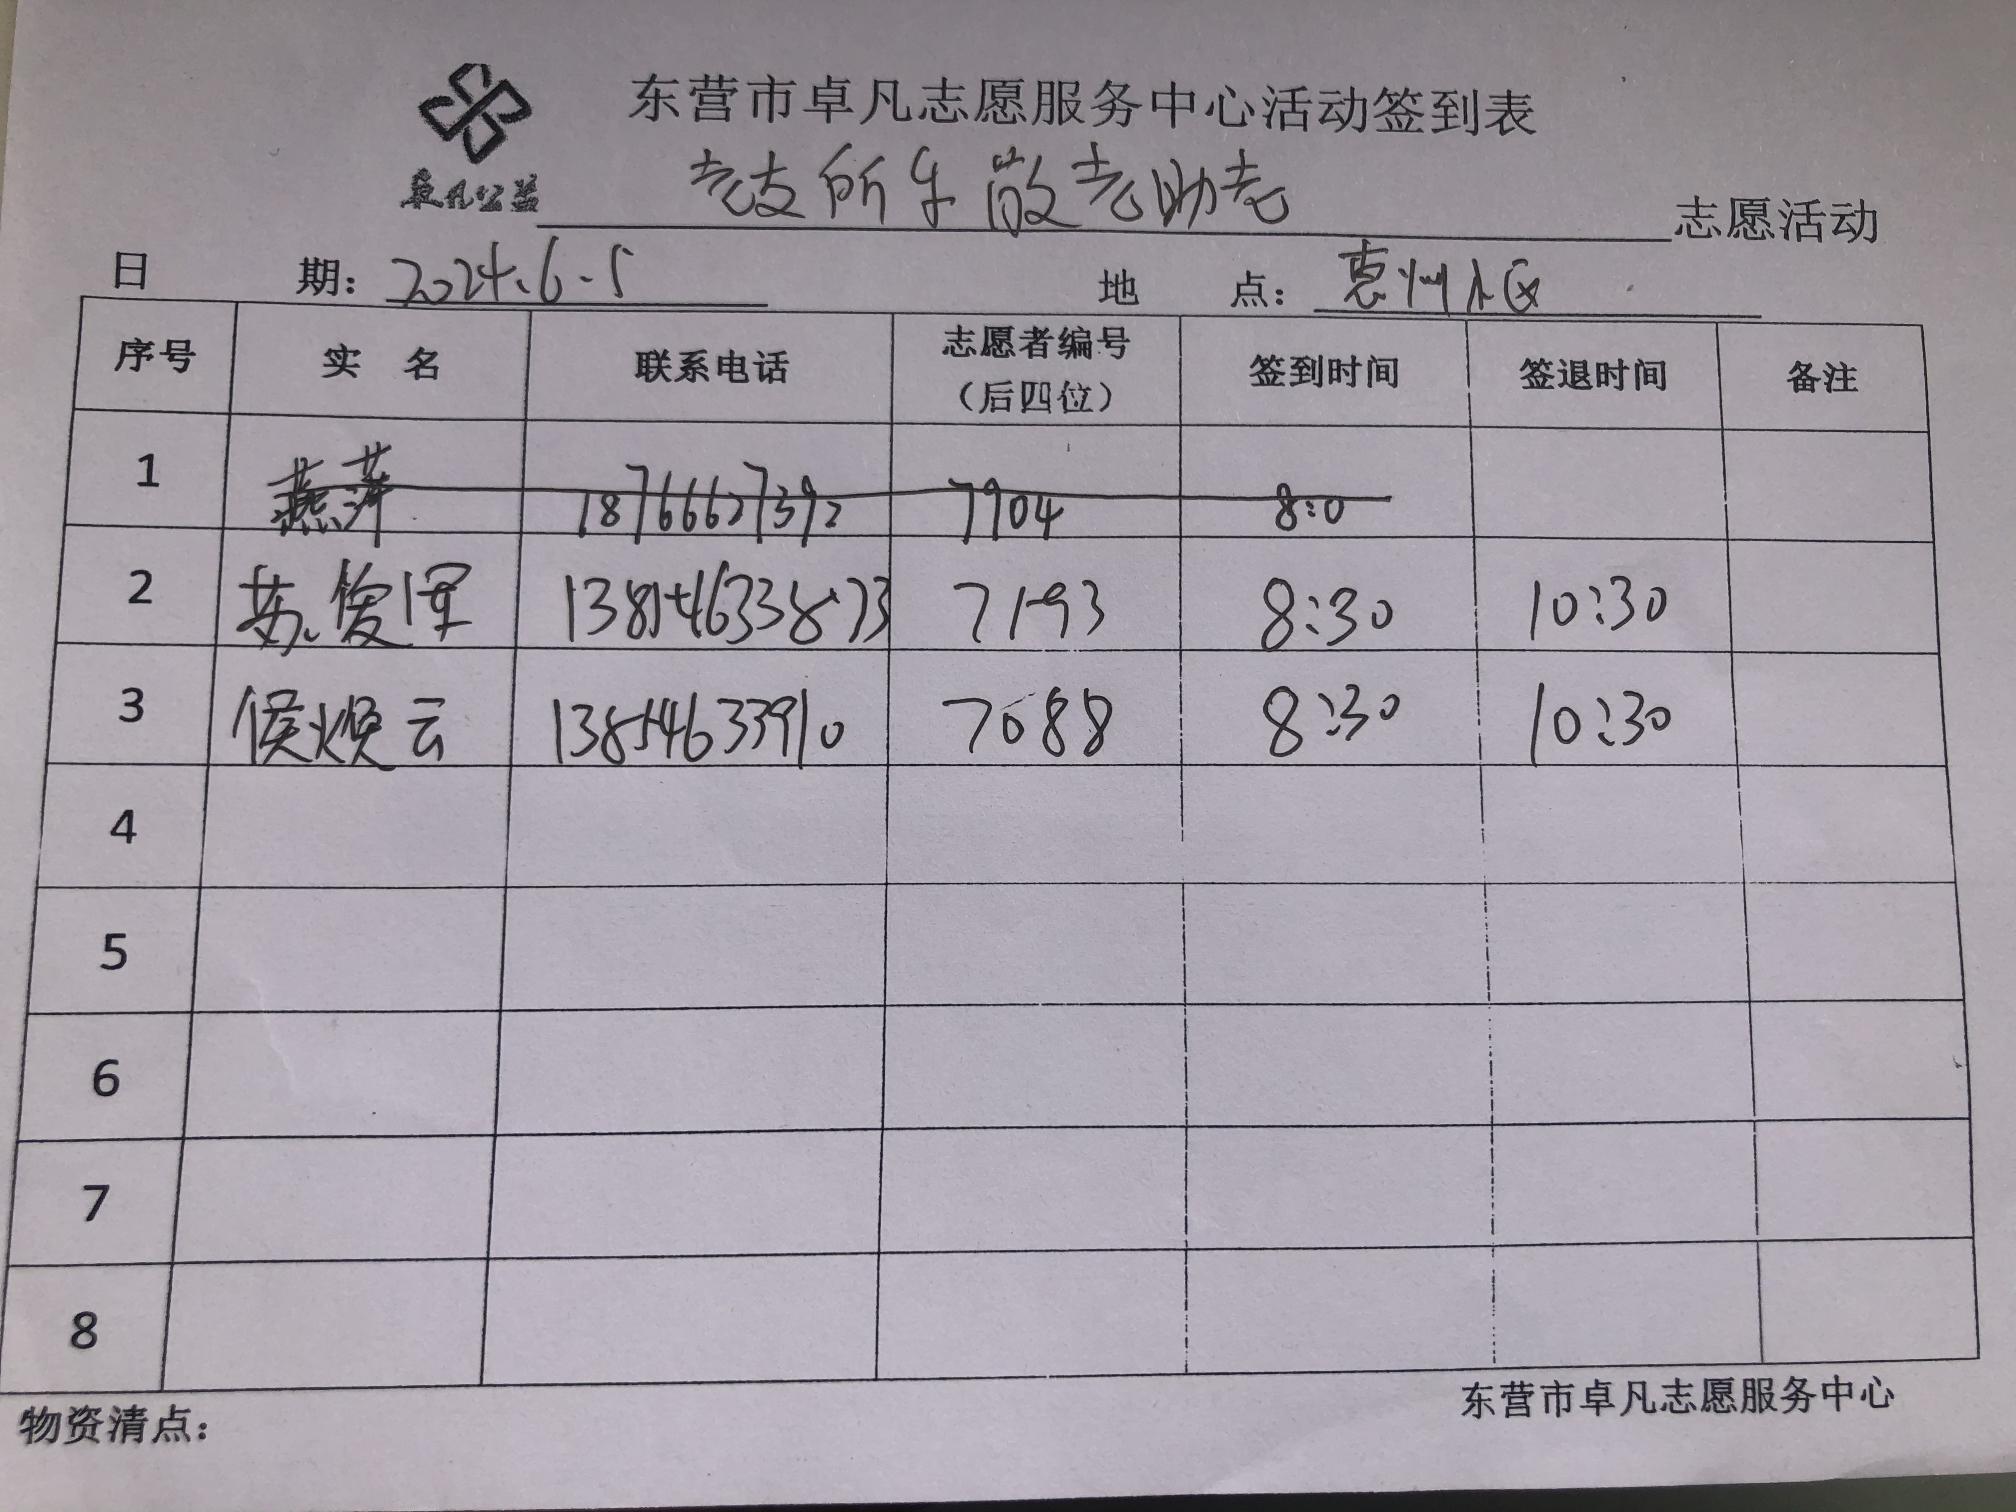 东营市卓凡志愿服务中心活动签到表
卓凡公益
老有所乐 敬老助老 志愿活动
日 期: 2024.6.5 地 点: 惠州小区
序号 实 名 联系电话 志愿者编号（后四位） 签到时间 签退时间 备注
1 燕萍 18766627392 7904 8:0
2 苏俊军 13854633873 7193 8:30 10:30
3 侯焕云 13854633910 7088 8:30 10:30
4
5
6
7
8
物资清点: 东营市卓凡志愿服务中心